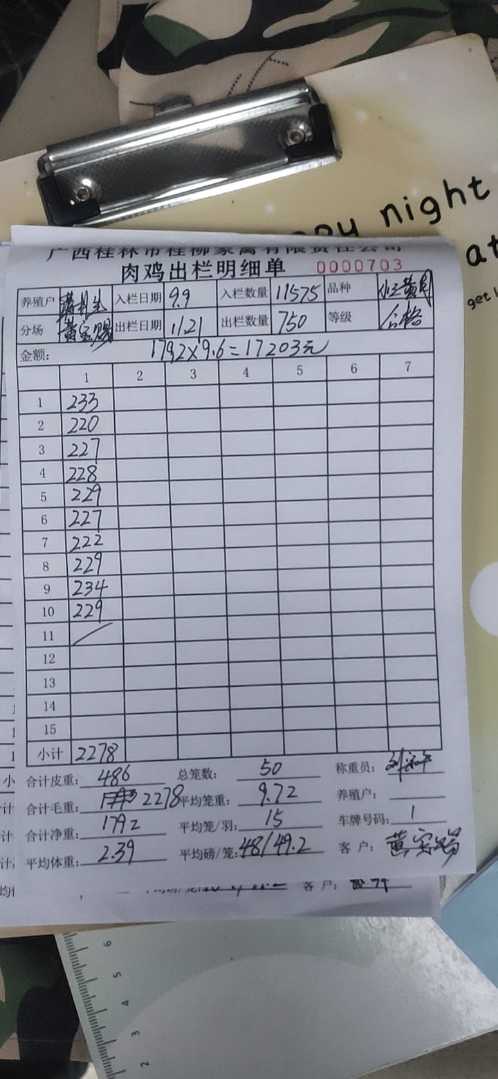 night
at
get
广西桂林市桂柳家禽有限责任公司
肉鸡出栏明细单 0000703
养殖户 入栏日期 9.9 入栏数量 11575 品种
分场 黄宝赐 出栏日期 11.21 出栏数量 750 等级 合格
金额: 1792×9.6=17203元
1 2 3 4 5 6 7
1 233
2 220
3 227
4 228
5 229
6 227
7 222
8 229
9 234
10 229
11
12
13
14
15
小计 2278
合计皮重: 486 总笼数: 50 称重员:
合计毛重: 2278 平均笼重: 9.72 养殖户:
合计净重: 1792 平均笼/羽: 15 车牌号码: 1
平均体重: 2.39 平均磅/笼: 48/49.2 客户: 黄宝赐
客户:
6
5
4
3
2